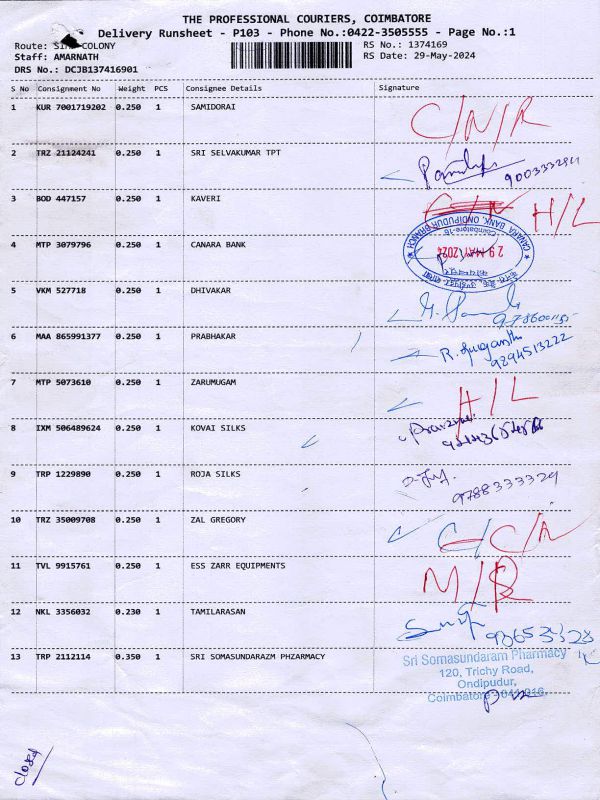 THE PROFESSIONAL COURIERS, COIMBATORE
Delivery Runsheet - P103 - Phone No.:0422-3505555 - Page No.:1
Route: COLONY
RS No.: 1374169
Staff: AMARNATH
RS Date: 29-May-2024
DRS No.: DCJB137416901
S No Consignment No Weight PCS Consignee Details Signature
1 KUR 7001719202 0.250 1 SAMIDORAI C/N/R
2 TRZ 21124241 0.250 1 SRI SELVAKUMAR TPT
3 BOD 447157 0.250 1 KAVERI H/L
4 MTP 3079796 0.250 1 CANARA BANK
CANARA BANK, ONDIPUDUR BRANCH
Coimbatore-16
29 MAY 2024
5 VKM 527718 0.250 1 DHIVAKAR
6 MAA 865991377 0.250 1 PRABHAKAR
9294513222
7 MTP 5073610 0.250 1 ZARUMUGAM H/L
8 IXM 506489624 0.250 1 KOVAI SILKS
9 TRP 1229890 0.250 1 ROJA SILKS
9788333329
10 TRZ 35009708 0.250 1 ZAL GREGORY
11 TVL 9915761 0.250 1 ESS ZARR EQUIPMENTS
12 NKL 3356032 0.230 1 TAMILARASAN
13 TRP 2112114 0.350 1 SRI SOMASUNDARAZM PHZARMACY
Sri Somasundaram Pharmacy
120, Trichy Road,
Ondipudur,
Coimbatore - 641 016.
closed